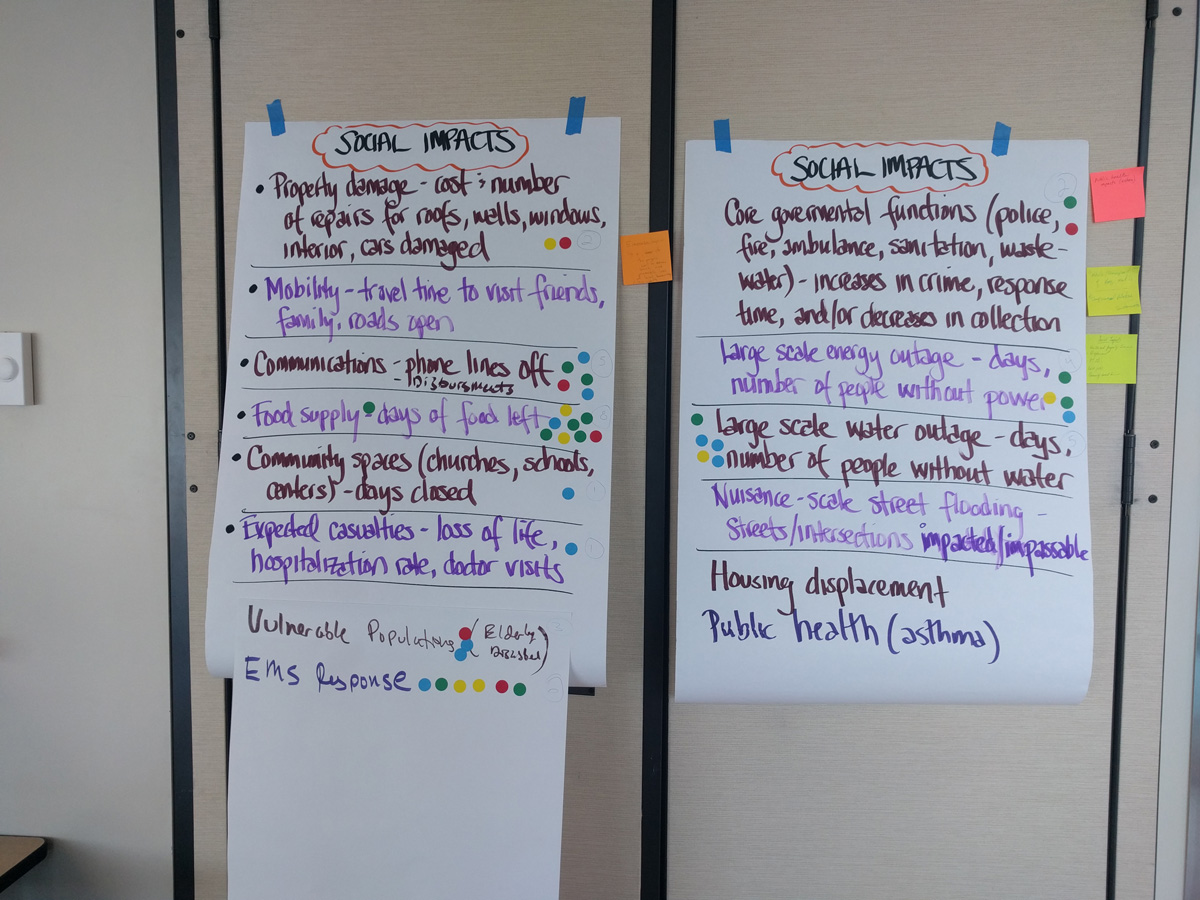 SOCIAL IMPACTS
• Property damage - cost ; number
of repairs for roofs, walls, windows,
interior, cars damaged
• Mobility - travel time to visit friends,
family, roads open
• Communications - phone lines off
- Disbursments
• Food supply - days of food left
• Community spaces (churches, schools,
centers) - days closed
• Expected casualties - loss of life,
hospitalization rate, doctor visits
Vulnerable Populations (Elderly
Disabled)
EMS Response
SOCIAL IMPACTS
Core govermental functions (police,
fire, ambulance, sanitation, waste-
water) - increases in crime, response
time, and/or decreases in collection
Large scale energy outage - days,
number of people without power
Large scale water outage - days,
number of people without water
Nuisance - scale street flooding -
Streets/intersections impacted/impassable
Housing displacement
Public health (asthma)